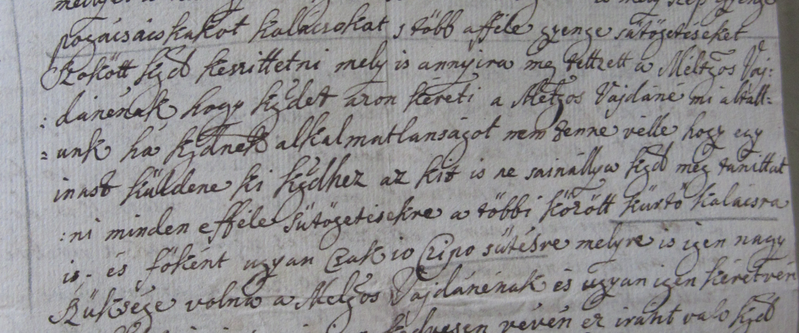 pogácsácskákot kalácsokat s több afféle gyenge sütögetéseket
szokott kgyd keszittetni mely is annyira meg tettzett a Méltgos Vaj:
:dánénak hogy kgydet aron kéreti a Meltgos Vajdáne mi általl:
:unk há kgydnek alkalmatlanságot nem tenne vélle hogy egy
inast küldene ki kgydhez az kit is ne sainállya kgyd meg taníttat
:ni minden efféle sütögetésekre a többi között kürtő kalácsra
is - és főként ugyan csak io Czipo sütésre melyre is igen nagy
szüksége volna a Meltgos Vajdánénak és ugyan igen kéretvén
vévén ez iránt valo kgyd